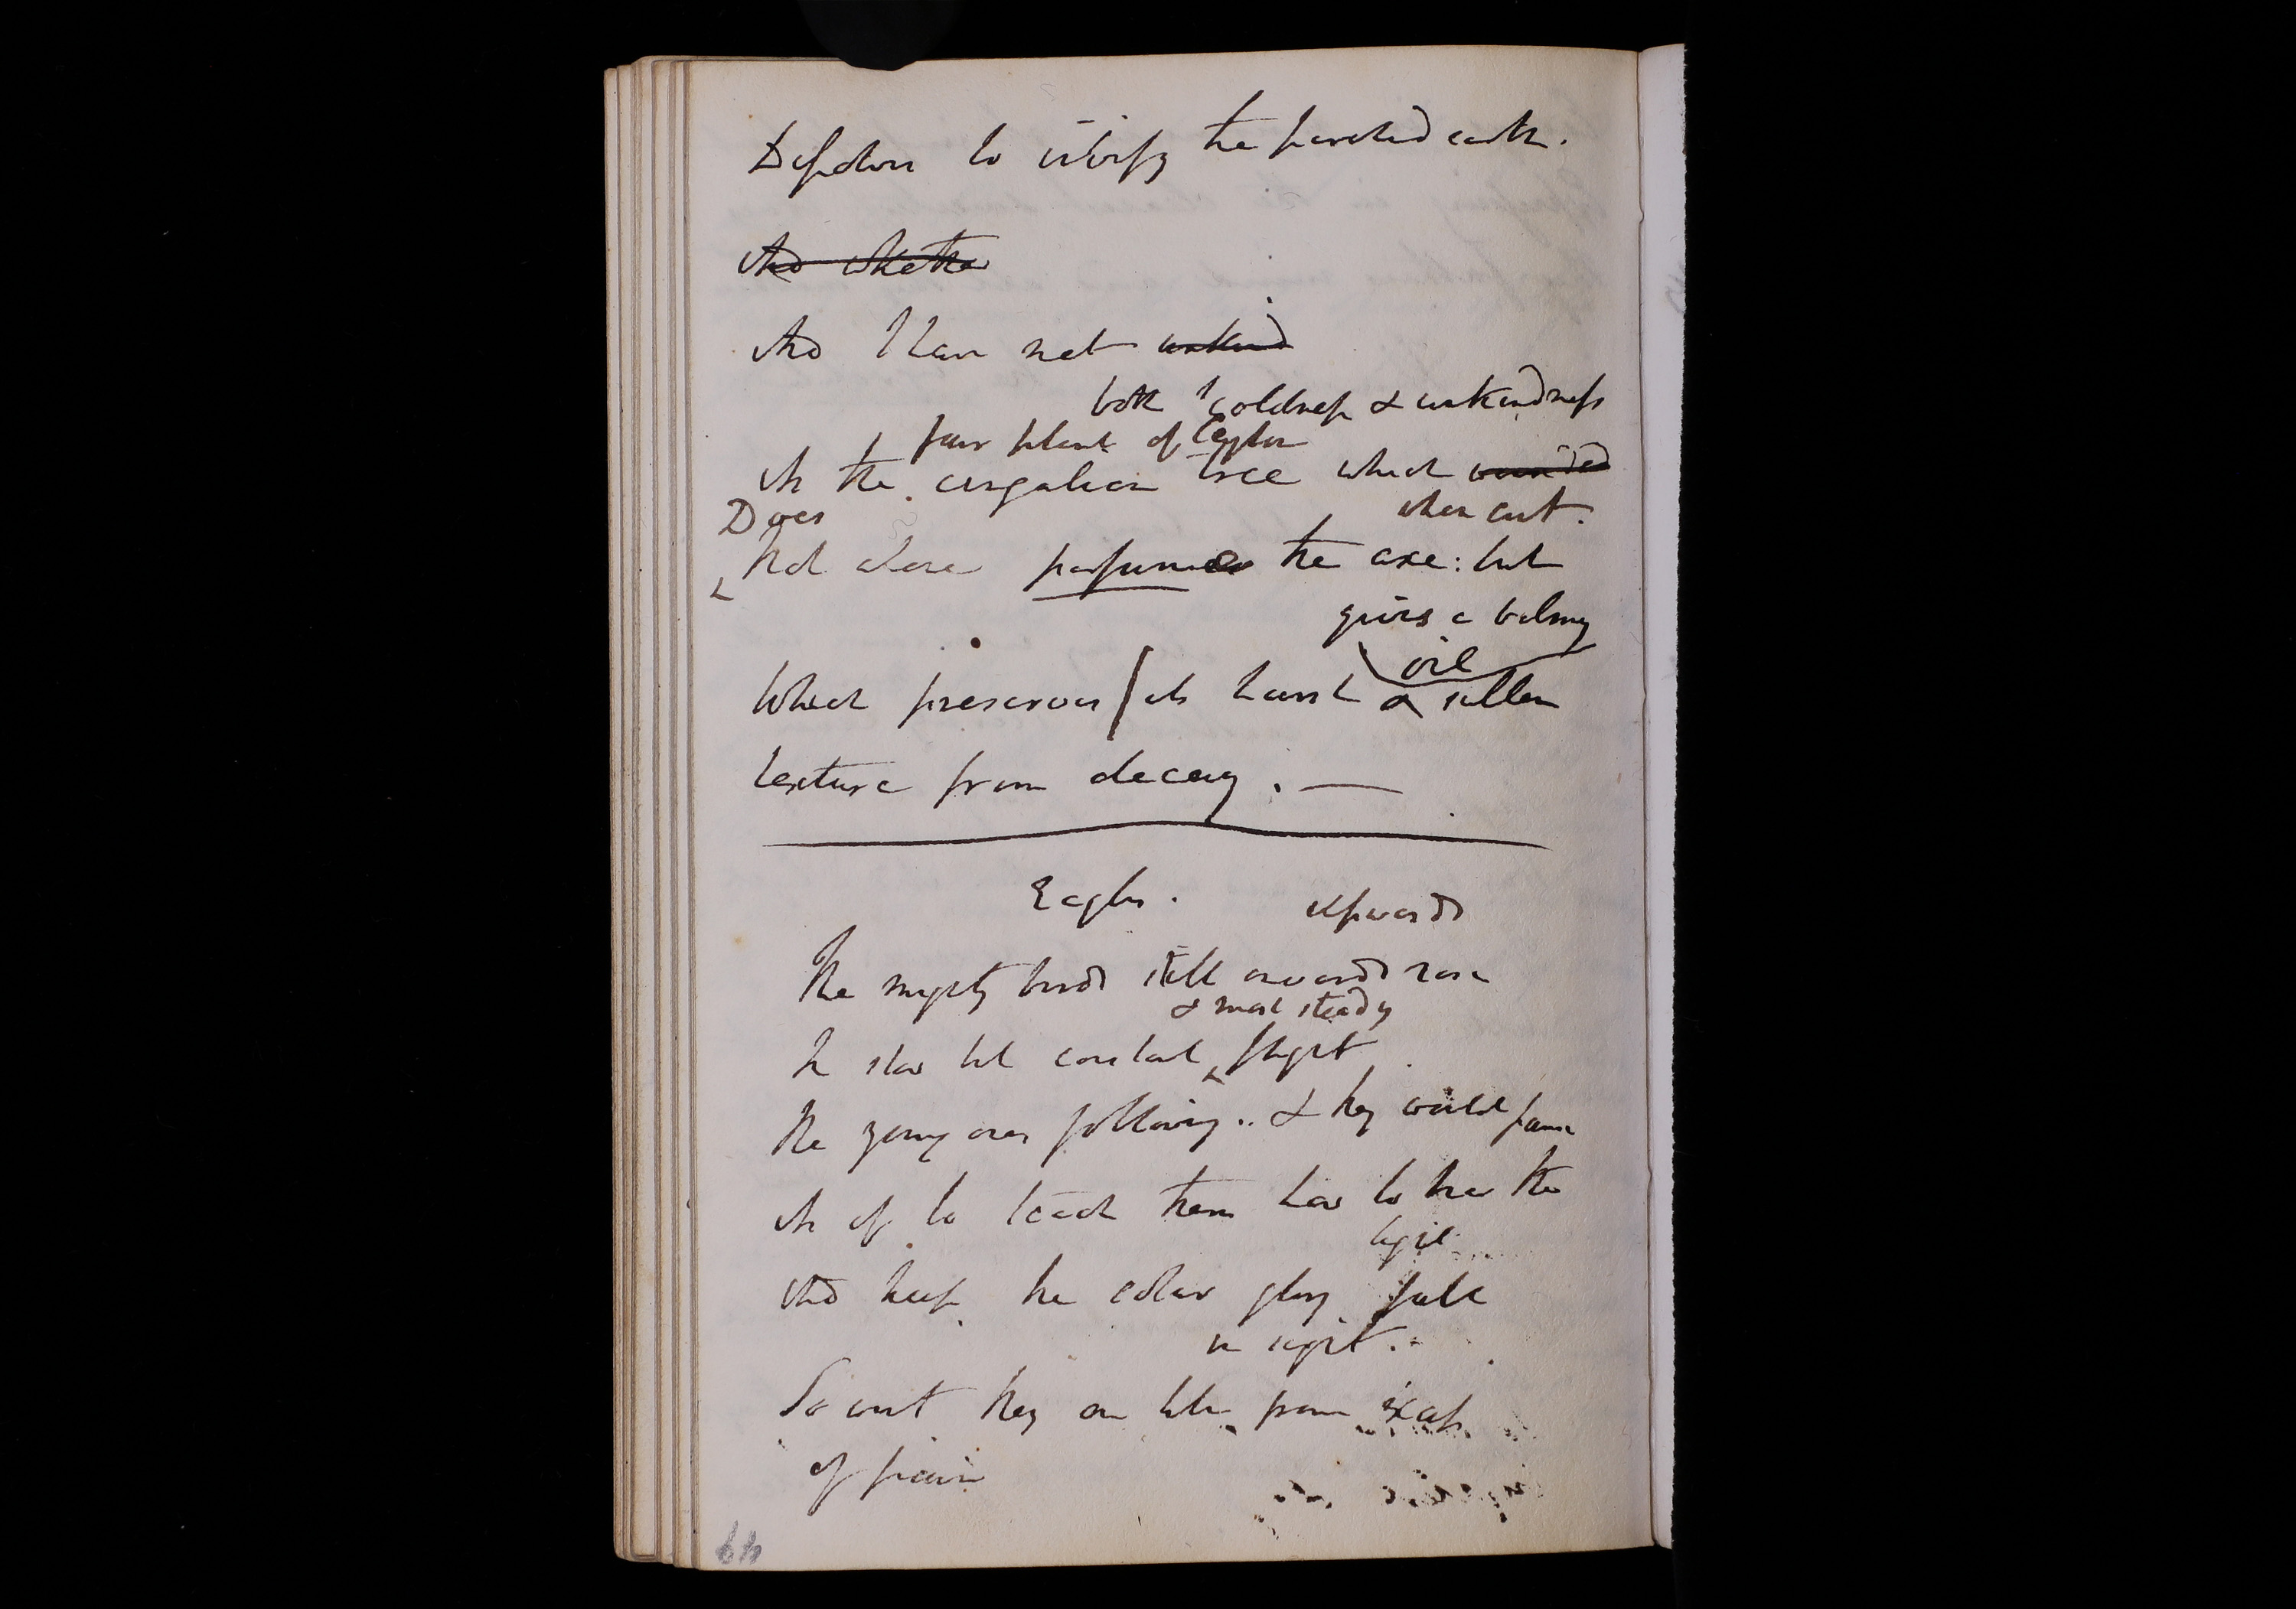 Dissolves to vivify the parched earth.
And whether
And I have met unkind
both coldness & unkindness
fair plant of Ceylon
As the cingalean tree which wounded
Does when cut.
Not alone perfumes the axe: but
gives a balmy
oil
Which preserves its harsh & sullen
texture from decay. —
Eagles.
upwards
The mighty birds still onwards rose
& most steady
In slow but constant flight
The young ones following.. & they would pause
As if to teach them how to bear the
light
And keep the solar glory full
in sight.
So went they on till from excess
of pain
49